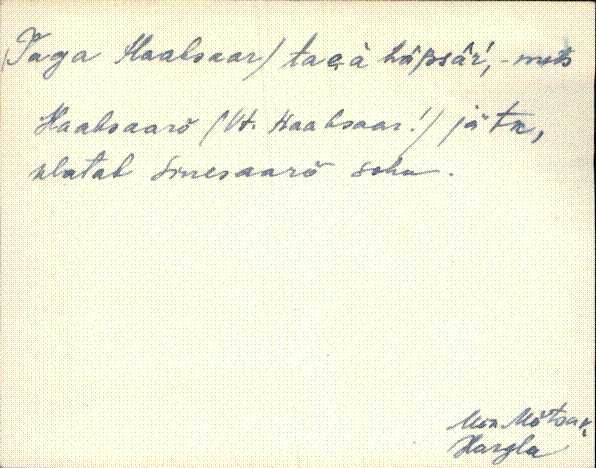 (Taga Haabsaar) tagà hāpsār', - mets
Haabsaarõ (Vt. Haabsaar!) jätk,
ulatab Sinesaarõ sohu.
Mõtsar,
Hargla